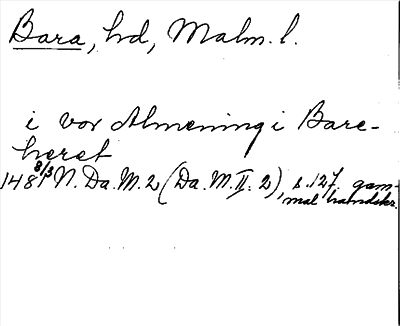 Bara, hd, Malm. l.
i vor Almening i Bare-
heret
148 8/3 N. Da. M. 2 (Da. M. II. 2), s. 127. gam-
mal handskr.